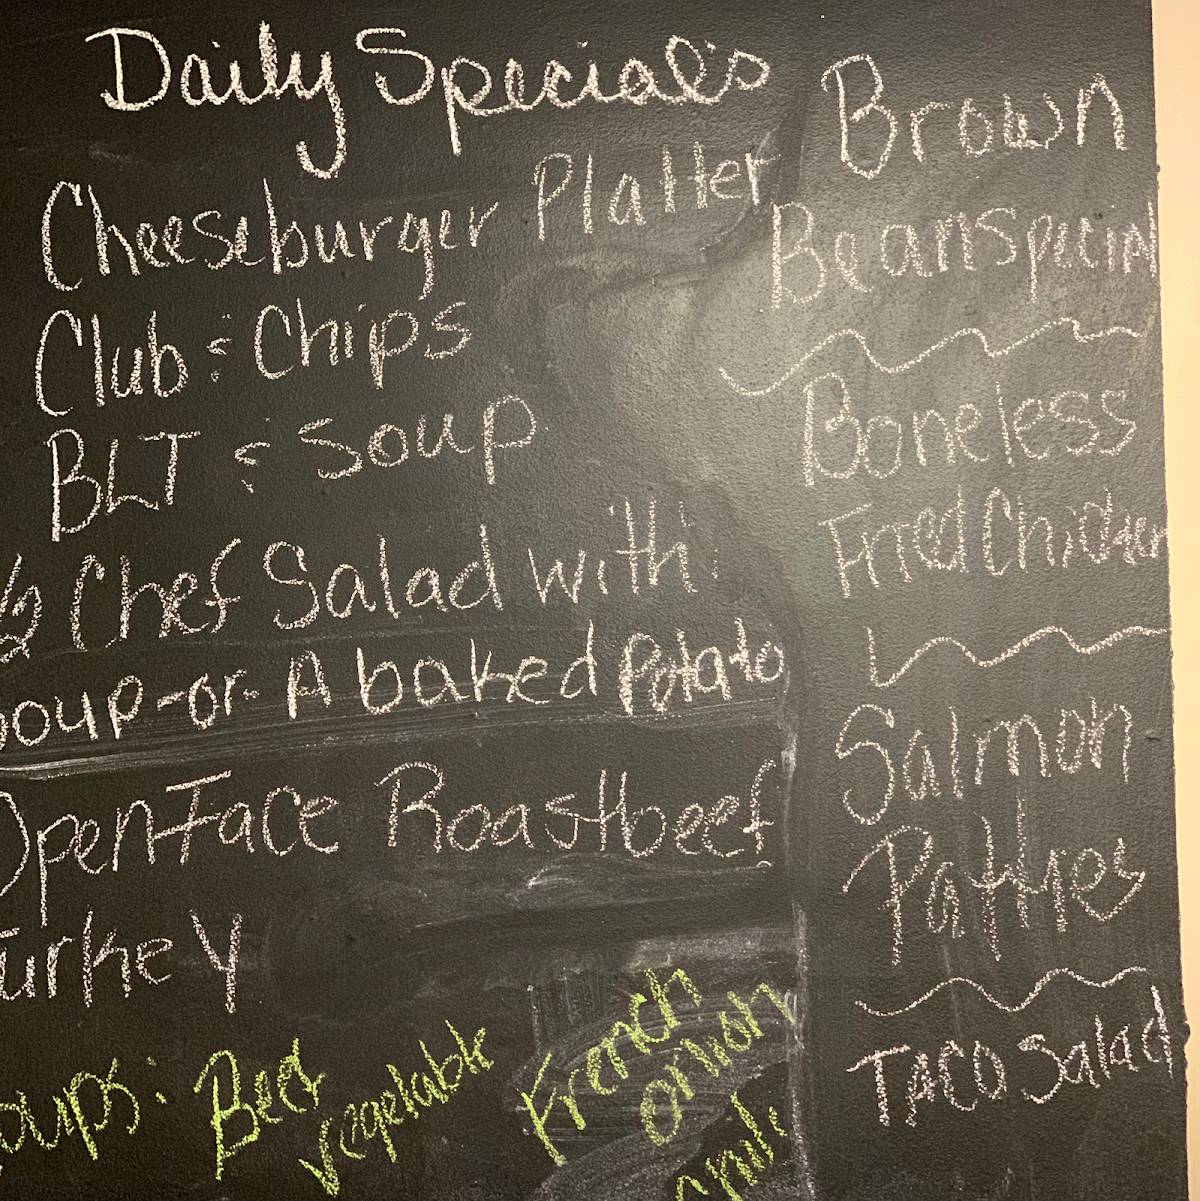 Daily Special's
Cheeseburger Platter
Club & Chips
BLT & Soup
1/2 Chef Salad with
Soup-or-A baked Potato
Open Face Roastbeef
Turkey
Soups: Beef
vegetable
French
onion
chili
Brown
Beanspecial
Boneless
Fried Chicken
Salmon
Patties
TACO Salad